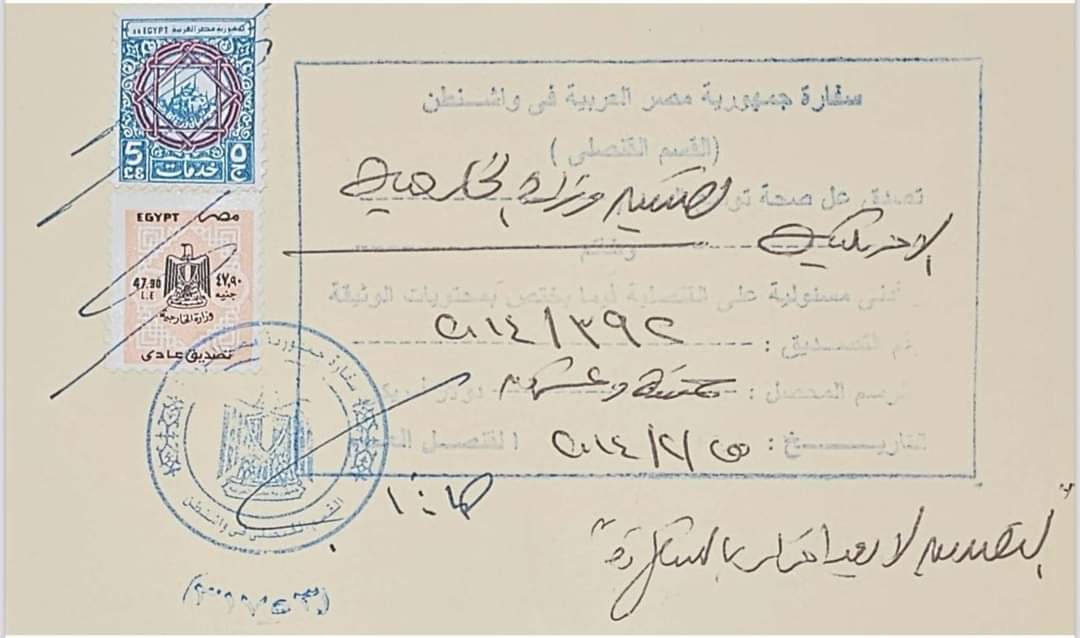 جمهورية مصر العربية EGYPT
5 خدمات ٥
EGYPT مصر
47.90 L.E ٤٧,٩٠ جنيه
وزارة الخارجية
تصديق عادى
سفارة جمهورية مصر العربية فى واشنطن
(القسم القنصلى)
تصدق على صحة توقيع وزارة الخارجية
الامريكية
وخاتم
أدنى مسئولية على القنصلية فيما يختص بمحتويات الوثيقة
رقم التصديق : ٢٠١٤/٣٩٢
الرسم المحصل : خمسة وعشرون دولار أمريكى
التاريخ : ٢٠١٤/٢/ القنصل العام
سفارة جمهورية مصر
القسم القنصلى فى واشنطن